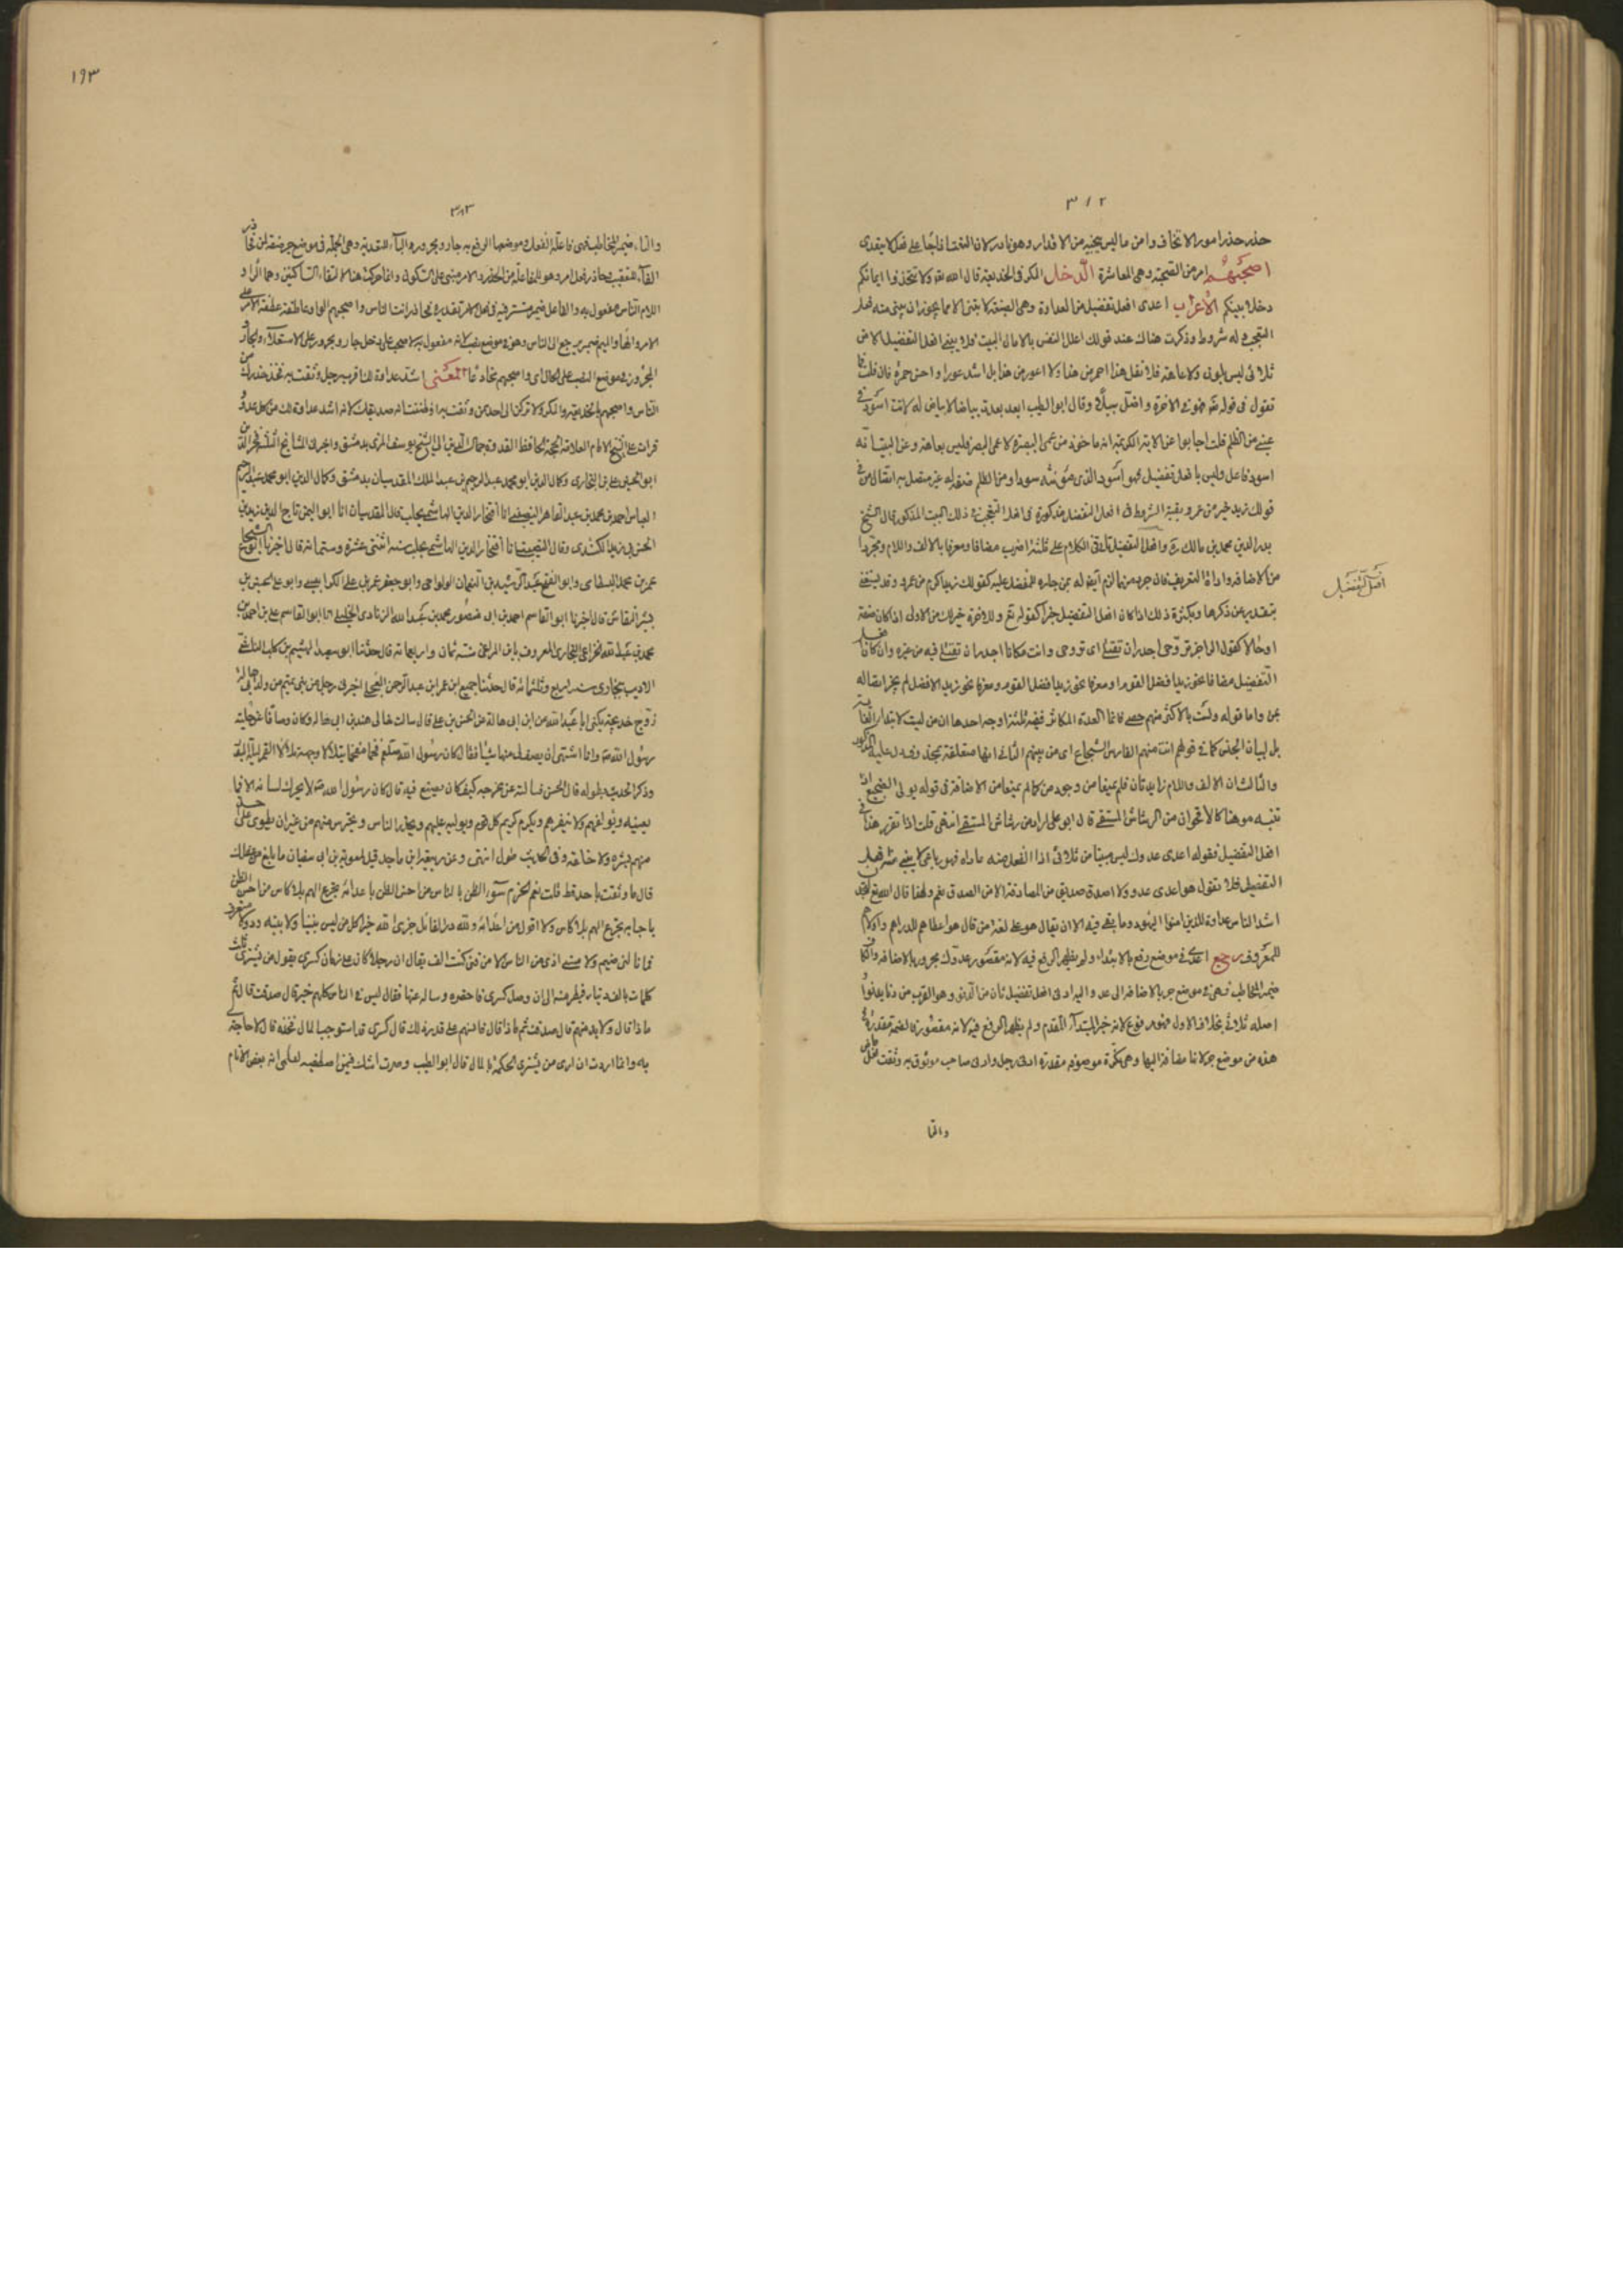 ٣١٢
حذر حذرا مور الاتخاف وامن ما ليس ينجيه من الاقدار
اصحبهم امر من الصحبة وهى المعاشرة الدخل المكر والخديعة قال الله تعالى ولا تتخذوا ايمانكم
دخلا بينكم الاعراب اعدى افعل تفضيل من العداوة وهى الصيغة لا تبنى الا مما يجوز ان يبنى منه فعل
التعجب وله شروط وذكرت هناك عند قوله اعلل النفس بالامال البيت فلا يبنى افعل التفضيل الا من
ثلاثى ليس بلون ولا عاهة فلا تقل هذا احمر من هذا ولا اعور من هذا بل اشد عورا واحسن حمرة فان قلت فما
تقول فى قوله فهو فى الاخرة اعمى واضل سبيلا وقال ابو الطيب ابعد بعدت بياضا لا بياض له لانت اسود فى
عينى من الظلم قلت اجابوا عن الاية الكريمة انه ماخوذ من عمى البصيرة لا عمى البصر فليس بعاهة وعن البيت بانه
اسود فاعل وليس بافعل تفضيل فهو اسود الذى مؤنثه سوداء ومن الظلم صفة له غير متصل به اتصال من فى
قولك زيد خير من عمرو وبقية الشروط فى افعل التفضيل مذكورة فى افعل التعجب فى ذلك البيت المذكور قال الشيخ
بدر الدين محمد بن مالك وافعل التفضيل ياتى فى الكلام على ثلثة اضرب مضافا ومعرفا بالالف واللام ومجردا
من الاضافة واداة التعريف فان جرد منهما لزم اتصاله بمن جارة للمفضل عليه كقولك زيد اكرم من عمرو وقد يستغنى
بتقدير من عن ذكرها ويكثر ذلك اذا كان افعل التفضيل خبرا كقوله تعالى وللاخرة خير لك من الاولى
او حالا كقول الراجز تروحى اجدر ان تقيلى اى تروحى وائت مكانا اجدر ان تقيلى فيه من غيره وان كان افعل
التفضيل مضافا نحو زيد افضل القوم او معرفا نحو زيد الافضل لم يجز اتصاله
بمن واما قوله ولست بالاكثر منهم حصى فانما العزة للكاثر ففيه ثلثة اوجه احدها ان من ليست لابتداء الغاية
بل لبيان الجنس كما فى قولهم انت منهم الفارس الشجاع اى من بينهم الثانى انها متعلقة بمحذوف دل عليه المذكور
والثالث ان الالف واللام زايدتان فلم يمنعا من وجود من كما لم يمنعا من الاضافة فى قوله تولى الضجيع اذا
تنبه موهنا كالاقحوان من الرشاش المستقى قال ابو على اراد من رشاش المستقى انتهى قلت اذا تقرر هذا فى
افعل التفضيل فقوله اعدى عدوك ليس مبنيا من ثلاثى
التفضيل فلا تقول هو اعدى عدو ولا اصدق صديق من المصادقة الا من الصدق نعم ولهذا قال الله تعالى لتجدن
اشد الناس عداوة للذين امنوا اليهود وما بقى فيه الا ان يقال هو على لغة من قال هو اعطاهم للدراهم واولاهم
للمعروف رجع اعدى فى موضع رفع بالابتداء ولم يظهر الرفع فيه لانه مقصور عدوك مجرور بالاضافة والكاف
ضمير المخاطب وهى فى موضع جر بالاضافة الى عدو ادنى افعل تفضيل ثان من الدنو وهو القرب من دنا يدنو
اصله ثلاثى بخلاف الاول فهو مرفوع لانه خبر المبتدأ المتقدم ولم يظهر الرفع فيه لانه مقصور فالضمة مقدرة
هذه من موضع جر لانها مضاف اليها وهى نكرة موصوفة مقدرة ادنى رجل وادنى صاحب موثوق به وثقت فعل
افعل التفضيل
والتا
١٩٣
٣١٣
والتاء ضمير المخاطب فهى فاعلة الفعل وموضعها الرفع به جار ومجرور والباء للتعدية وهى الجملة فى موضع جر صفة لمن فحاذر
الفاء للتعقيب حاذر فعل امر وهو للمفاعلة من الحذر والامر مبنى على السكون وانما حركت هنا لالتقاء الساكنين وهما الراء و
اللام الناس مفعول به والفاعل ضمير مستتر فيه فى فعل الامر تقديره فحاذر انت الناس واصحبهم الواو عاطفة عطفت الامر على
الامر والهاء والميم ضمير يرجع الى الناس وهو فى موضع نصب لانه مفعول به لاصحب على دخل جار ومجرور على للاستعلاء والجار
والمجرور فى موضع النصب على الحال اى واصحبهم مخادعا المعنى اشد عداوة لك اقرب رجل وثقت به فخذ حذرك من
الناس واصحبهم بالخديعة والمكر ولا تركن الى احد ممن وثقت به او ظننت انه صديقك لانه اشد عداوة لك من كل عدو
قرات على الشيخ الامام العلامة الحجة الحافظ القدوة جمال الدين ابى الحجاج يوسف المزى بدمشق
ابو الحسن على بن البخارى وكمال الدين ابو محمد عبد الرحيم بن عبد الملك المقدسيان بدمشق وكمال الدين ابو محمد عبد الرحيم
العباس احمد بن محمد بن عبد القاهر النصيبى انا افتخار الدين الهاشمى بحلب قال المقدسيان انا ابو اليمن تاج الدين زيد بن
الحسن بن زيد الكندى وقال النصيبى انا افتخار الدين الهاشمى بحلب سنة اثنتى عشرة وستمائة قال اخبرنا
عمر بن محمد البسطامى وابو الفتح عبد الرشيد بن النعمان الولوالجى وابو جعفر عمر بن على الكرابيسى وابو على الحسن بن
بشير النقاش قال اخبرنا ابو القاسم احمد بن ابى منصور محمد بن عبد الله الزيادى الخليلى انا ابو القاسم على بن احمد بن
محمد بن عبد الله الخزاعى البخارى المعروف بابن المراغى سنة ثمان واربعمائة قال حدثنا ابو سعيد الهيثم بن كليب الشاشى
الاديب ببخارى سنة اربع وثلثمائة قال حدثنا جميع بن عمر بن عبد الرحمن العجلى اخبرنى رجل من بنى تميم من ولد ابى هالة
زوج خديجة يكنى ابا عبد الله عن ابن ابى هالة عن الحسن بن على قال سالت خالى هند بن ابى هالة وكان وصافا عن حلية
رسول الله وانا اشتهى ان يصف لى منها شيئا فقال كان رسول الله صلعم فخما مفخما يتلألأ وجهه تلألأ القمر ليلة البدر
وذكر الحديث بطوله قال الحسن فسالته عن مخرجه كيف كان يصنع فيه قال كان رسول الله لا يحرك لسانه الا فيما
يعنيه ويؤلفهم ولا ينفرهم ويكرم كريم كل قوم ويوليه عليهم ويحذر الناس ويحترس منهم من غير ان يطوى على احد
منهم بشره ولا خلقه وفى الحديث طول انتهى وعن ربيعة ابن ماجد قيل لمعوية بن ابى سفيان ما بلغ من عقلك
قال ما وثقت باحد قط قلت نعم الحزم سوء الظن بالناس من احسن الظن باعدائه تجرع الهم بلا كاس من احسن الظن
باحبابه تجرع الهم بلا كاس ولا اقول من اعدائه ولله در القائل جزى الله خيرا كل من ليس بيننا ولا بينه ود
فما نالنى ضيم ولا مسنى اذى من الناس الا من فتى كنت الف يقال ان رجلا كان على زمان كسرى يقول من يشترى ثلث
كلمات بالف دينار فيطرفه الى ان وصل كسرى فاحضره وساله عنها فقال ليس فى الناس كلهم خير قال صدقت قال ثم
ماذا قال ولا بد منهم قال صدقت ثم ماذا قال فالبسهم على قدر ذلك قال كسرى قد استوجب المال فخذه قال لا حاجة لى
به وانما اردت ان ارى من يشترى الحكمة بالمال قال ابو الطيب وصرت اشك فيمن اصطفيه لعلمى انه بعض الانام